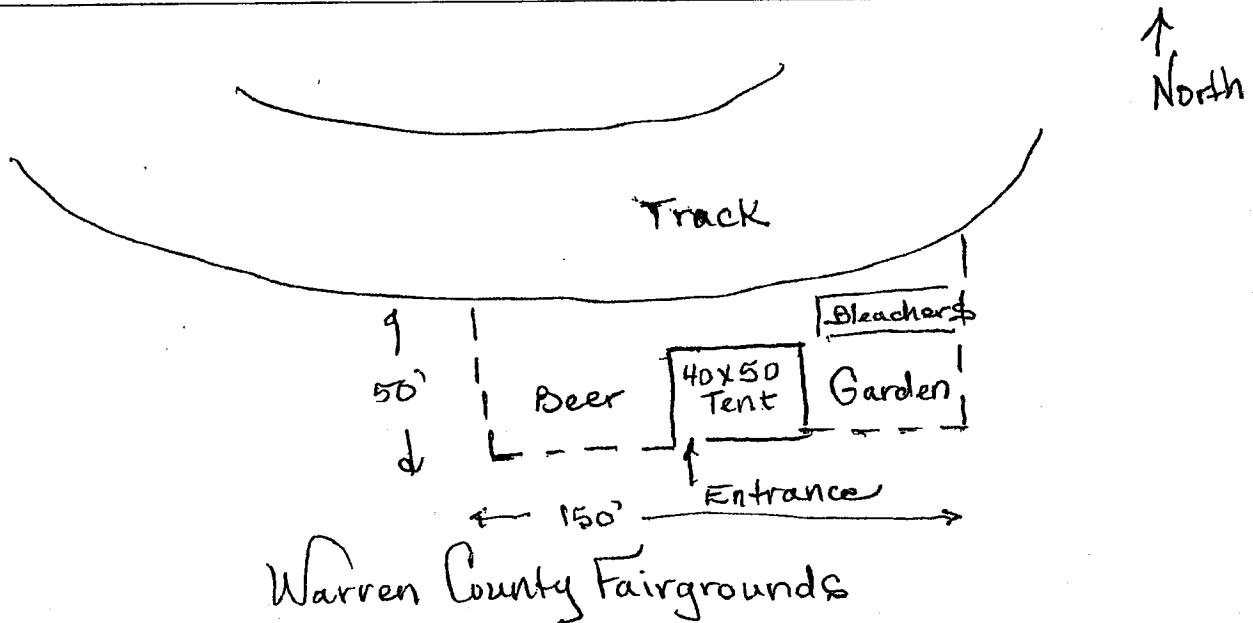 North
Track
Bleachers
50'
Beer
40x50
Tent
Garden
Entrance
150'
Warren County Fairgrounds